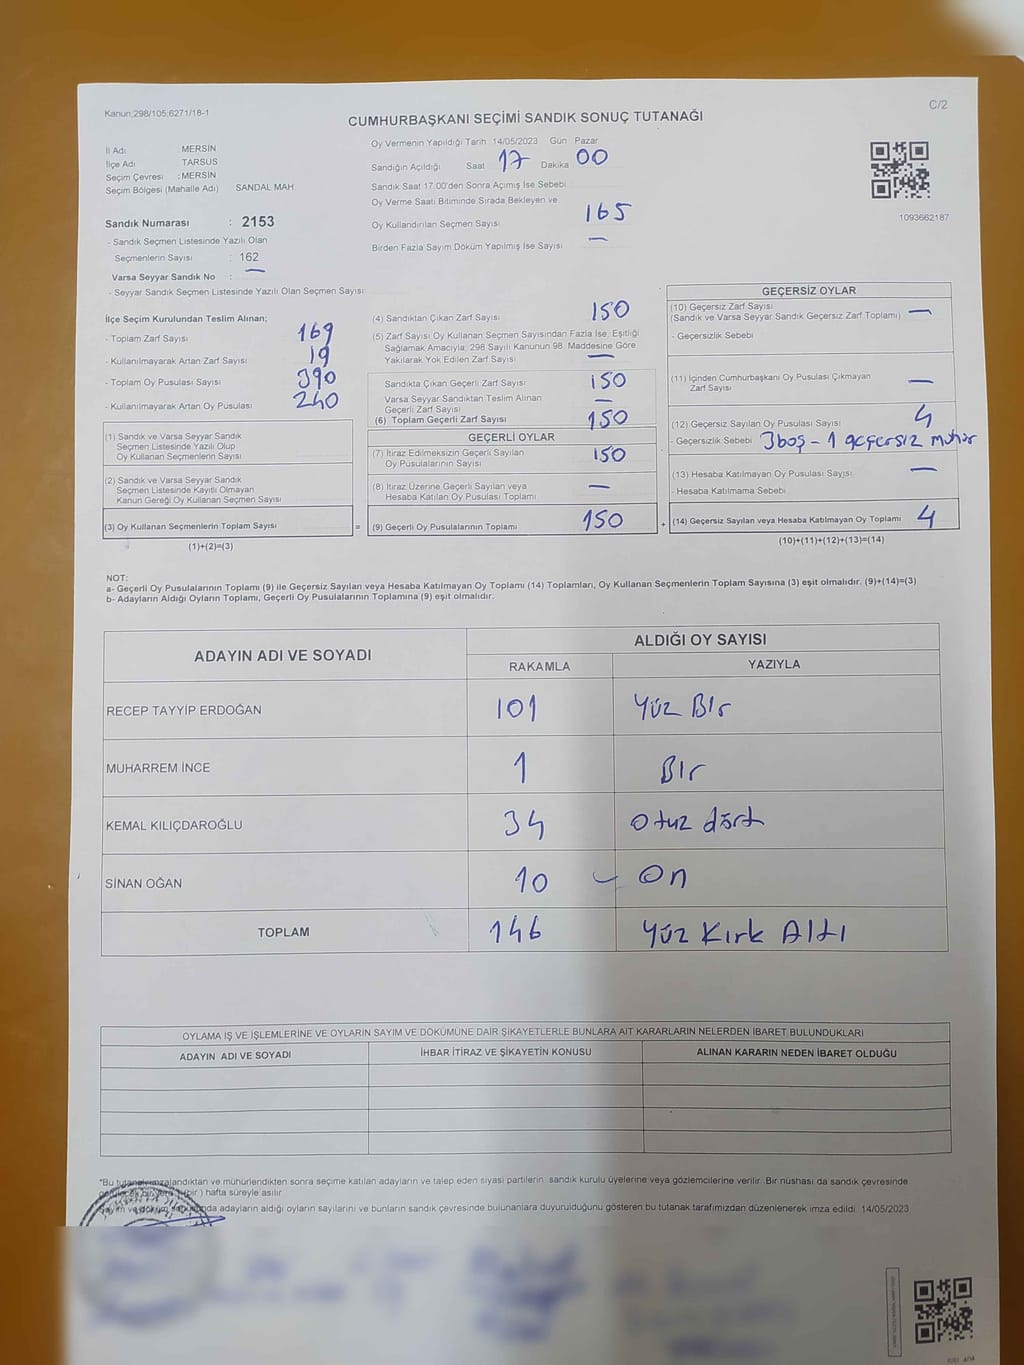 Kanun:298/105;6271/18-1
C/2
CUMHURBAŞKANI SEÇİMİ SANDIK SONUÇ TUTANAĞI
İl Adı : MERSİN
İlçe Adı TARSUS
Seçim Çevresi : MERSİN
Seçim Bölgesi (Mahalle Adı) SANDAL MAH
Sandık Numarası : 2153
- Sandık Seçmen Listesinde Yazılı Olan
Seçmenlerin Sayısı : 162
Varsa Seyyar Sandık No : —
- Seyyar Sandık Seçmen Listesinde Yazılı Olan Seçmen Sayısı:
Oy Vermenin Yapıldığı Tarih 14/05/2023 Gün Pazar
Sandığın Açıldığı Saat 17 Dakika 00
Sandık Saat 17:00'den Sonra Açılmış İse Sebebi
Oy Verme Saati Bitiminde Sırada Bekleyen ve
Oy Kullandırılan Seçmen Sayısı 165
Birden Fazla Sayım Döküm Yapılmış İse Sayısı —
1093662187
İlçe Seçim Kurulundan Teslim Alınan;
- Toplam Zarf Sayısı 169
- Kullanılmayarak Artan Zarf Sayısı 19
- Toplam Oy Pusulası Sayısı 390
- Kullanılmayarak Artan Oy Pusulası 240
(1) Sandık ve Varsa Seyyar Sandık
Seçmen Listesinde Yazılı Olup
Oy Kullanan Seçmenlerin Sayısı
(2) Sandık ve Varsa Seyyar Sandık
Seçmen Listesinde Kayıtlı Olmayan
Kanun Gereği Oy Kullanan Seçmen Sayısı
(3) Oy Kullanan Seçmenlerin Toplam Sayısı =
(1)+(2)=(3)
(4) Sandıktan Çıkan Zarf Sayısı 150
(5) Zarf Sayısı Oy Kullanan Seçmen Sayısından Fazla İse, Eşitliği
Sağlamak Amacıyla, 298 Sayılı Kanunun 98. Maddesine Göre
Yakılarak Yok Edilen Zarf Sayısı —
Sandıkta Çıkan Geçerli Zarf Sayısı 150
Varsa Seyyar Sandıktan Teslim Alınan
Geçerli Zarf Sayısı —
(6) Toplam Geçerli Zarf Sayısı 150
GEÇERLİ OYLAR
(7) İtiraz Edilmeksizin Geçerli Sayılan
Oy Pusulalarının Sayısı 150
(8) İtiraz Üzerine Geçerli Sayılan veya
Hesaba Katılan Oy Pusulası Toplamı —
(9) Geçerli Oy Pusulalarının Toplamı 150 +
GEÇERSİZ OYLAR
(10) Geçersiz Zarf Sayısı
(Sandık ve Varsa Seyyar Sandık Geçersiz Zarf Toplamı) —
- Geçersizlik Sebebi
(11) İçinden Cumhurbaşkanı Oy Pusulası Çıkmayan
Zarf Sayısı —
(12) Geçersiz Sayılan Oy Pusulası Sayısı 4
- Geçersizlik Sebebi 3 boş - 1 geçersiz mühür
(13) Hesaba Katılmayan Oy Pusulası Sayısı —
- Hesaba Katılmama Sebebi
(14) Geçersiz Sayılan veya Hesaba Katılmayan Oy Toplamı 4
(10)+(11)+(12)+(13)=(14)
NOT:
a- Geçerli Oy Pusulalarının Toplamı (9) ile Geçersiz Sayılan veya Hesaba Katılmayan Oy Toplamı (14) Toplamları, Oy Kullanan Seçmenlerin Toplam Sayısına (3) eşit olmalıdır. (9)+(14)=(3)
b- Adayların Aldığı Oyların Toplamı, Geçerli Oy Pusulalarının Toplamına (9) eşit olmalıdır.
ADAYIN ADI VE SOYADI
ALDIĞI OY SAYISI
RAKAMLA YAZIYLA
RECEP TAYYİP ERDOĞAN 101 Yüz Bir
MUHARREM İNCE 1 Bir
KEMAL KILIÇDAROĞLU 34 Otuz dört
SİNAN OĞAN 10 On
TOPLAM 146 Yüz Kırk Altı
OYLAMA İŞ VE İŞLEMLERİNE VE OYLARIN SAYIM VE DÖKÜMÜNE DAİR ŞİKAYETLERLE BUNLARA AİT KARARLARIN NELERDEN İBARET BULUNDUKLARI
ADAYIN ADI VE SOYADI İHBAR İTİRAZ VE ŞİKAYETİN KONUSU ALINAN KARARIN NEDEN İBARET OLDUĞU
*Bu tutanak imzalandıktan ve mühürlendikten sonra seçime katılan adayların ve talep eden siyasi partilerin sandık kurulu üyelerine veya gözlemcilerine verilir. Bir nüshası da sandık çevresinde
(bir) hafta süreyle asılır
Sayım ve döküm sonucunda adayların aldığı oyların sayılarını ve bunların sandık çevresinde bulunanlara duyurulduğunu gösteren bu tutanak tarafımızdan düzenlenerek imza edildi. 14/05/2023